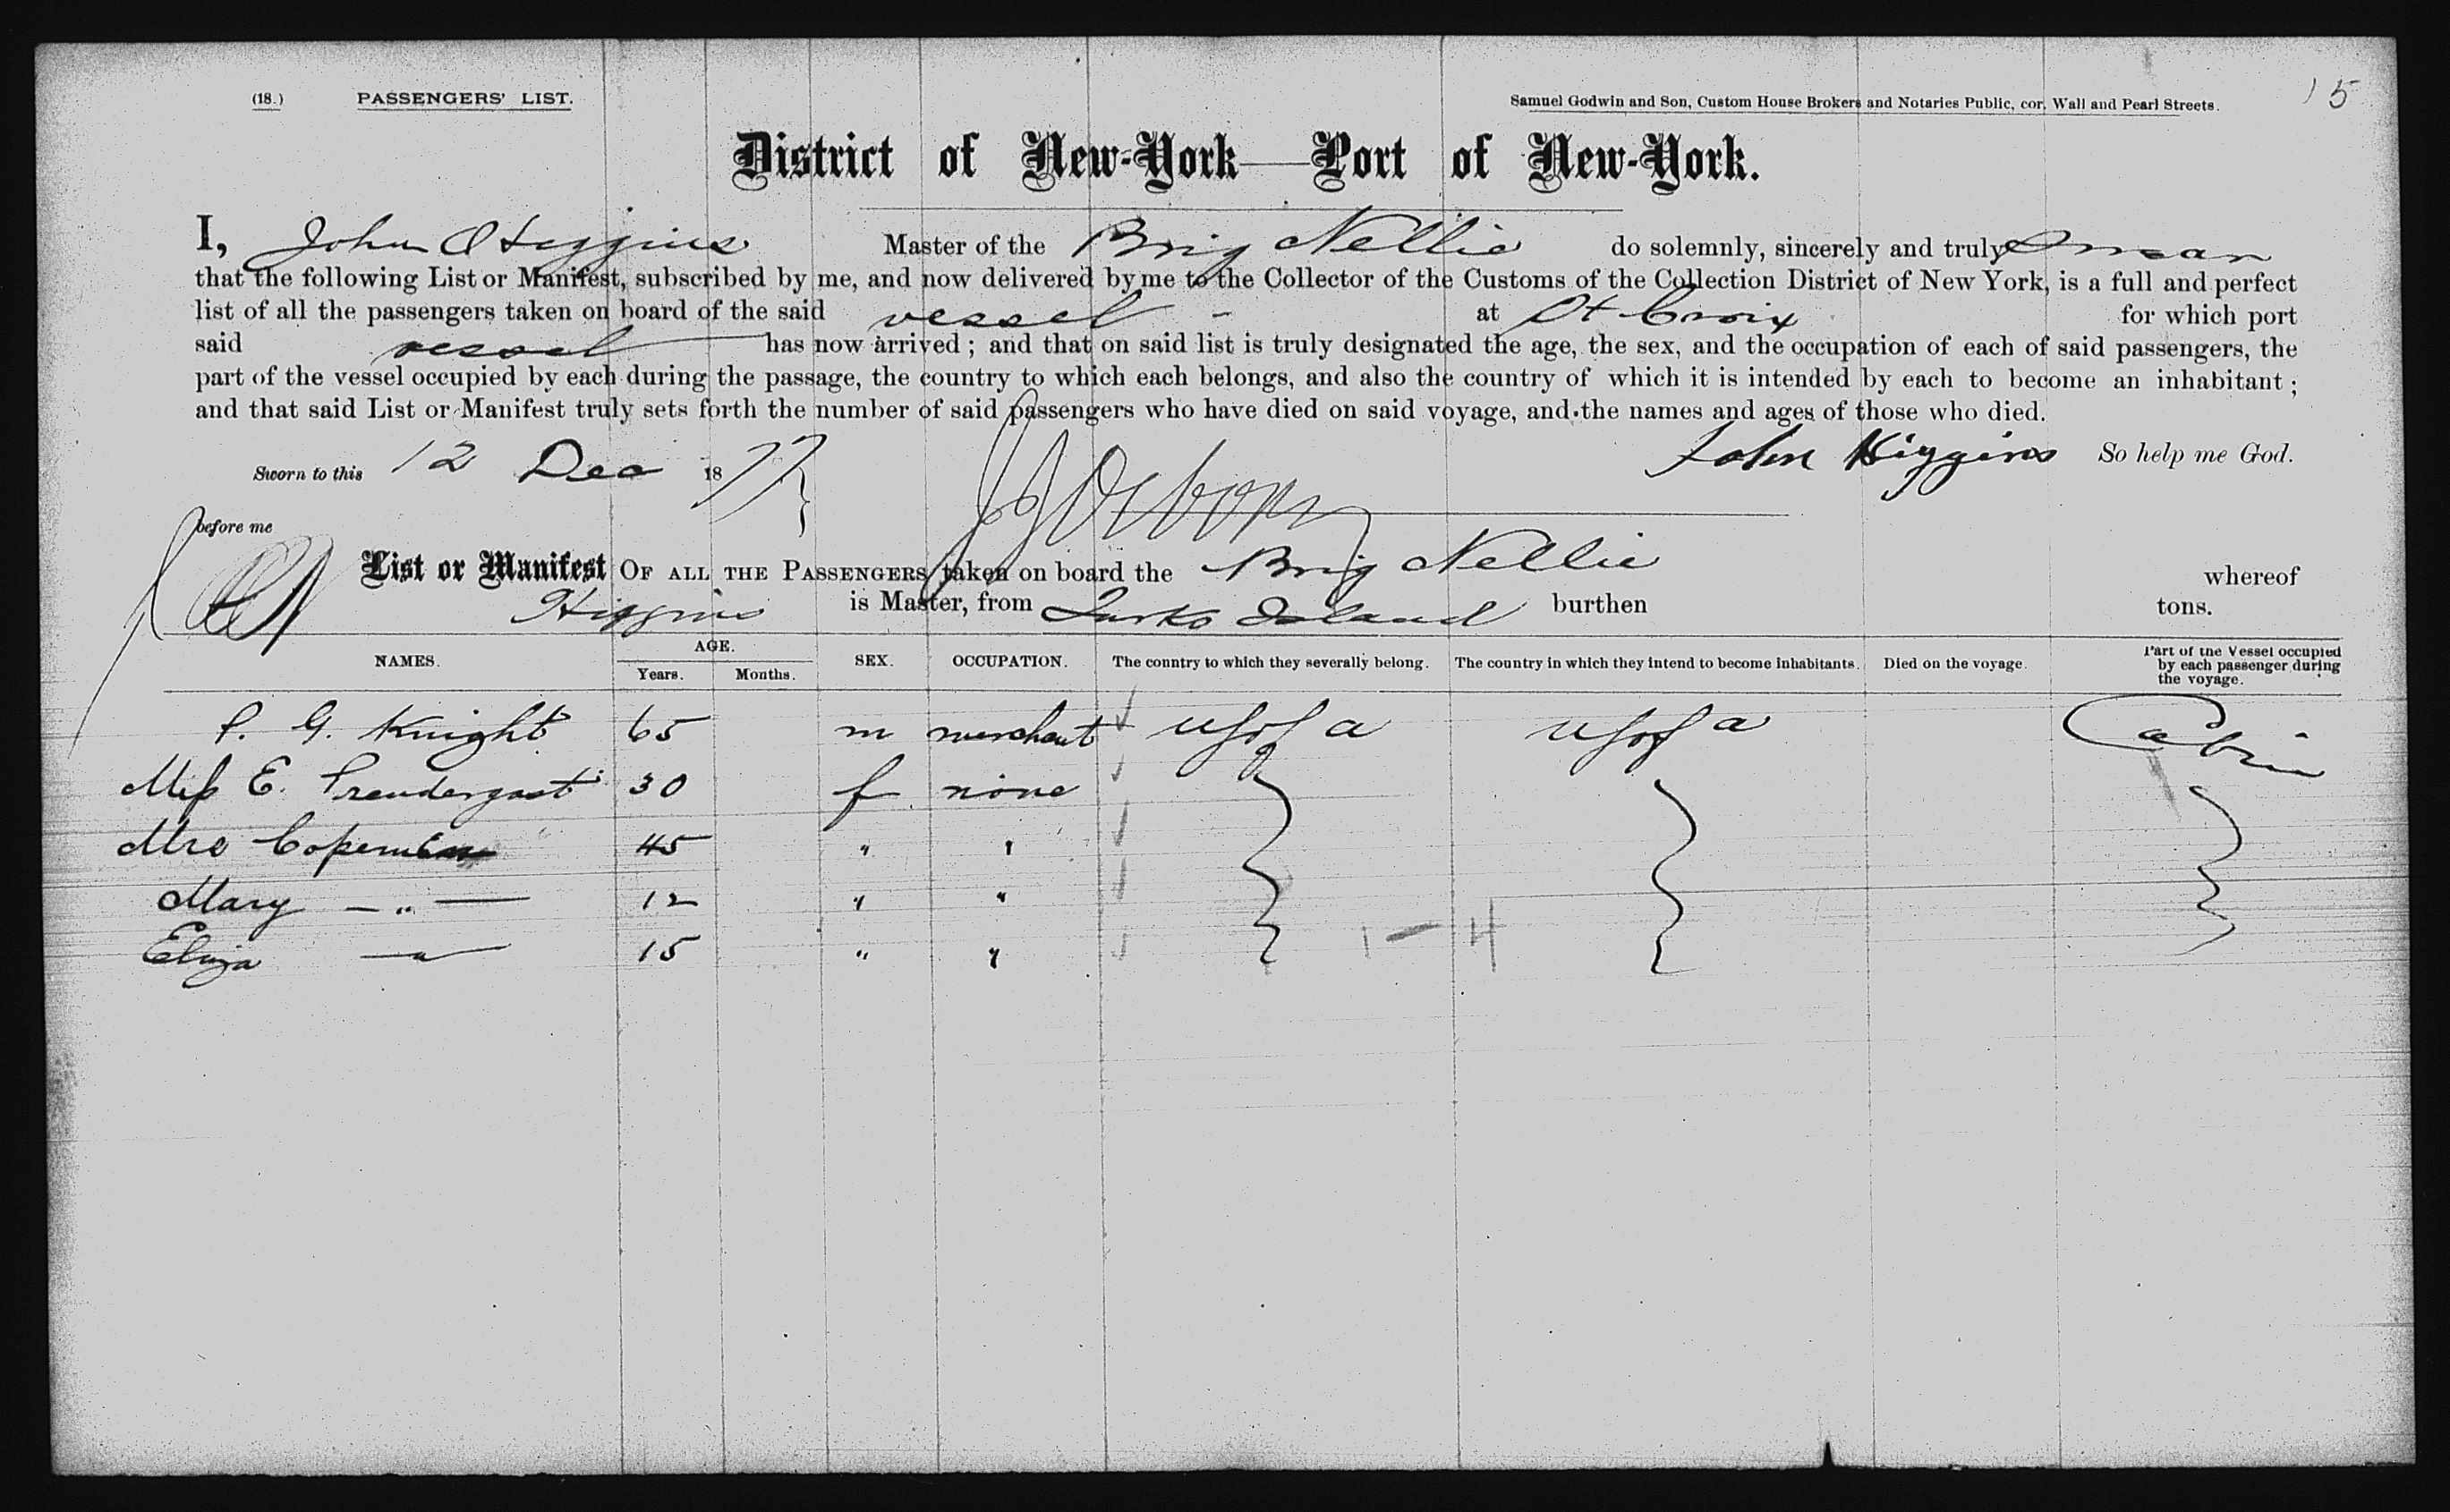 (18.) PASSENGERS' LIST. Samuel Godwin and Son, Custom House Brokers and Notaries Public, cor. Wall and Pearl Streets. 15
District of New-York—Port of New-York.
I, John Higgins Master of the Brig Nellie do solemnly, sincerely and truly swear
that the following List or Manifest, subscribed by me, and now delivered by me to the Collector of the Customs of the Collection District of New York, is a full and perfect
list of all the passengers taken on board of the said vessel - at St Croix for which port
said vessel has now arrived; and that on said list is truly designated the age, the sex, and the occupation of each of said passengers, the
part of the vessel occupied by each during the passage, the country to which each belongs, and also the country of which it is intended by each to become an inhabitant;
and that said List or Manifest truly sets forth the number of said passengers who have died on said voyage, and the names and ages of those who died.
Sworn to this 12 Dec 1877 John Higgins So help me God.
before me
List or Manifest OF ALL THE PASSENGERS taken on board the Brig Nellie whereof
Higgins is Master, from Turks Island burthen tons.
NAMES. AGE. Years. Months. SEX. OCCUPATION. The country to which they severally belong. The country in which they intend to become inhabitants. Died on the voyage. Part of the Vessel occupied by each passenger during the voyage.
P. G. Knight 65 m merchant U S of a U S of a Cabin
Miss E. Prendergast 30 f none
Mrs 45 " "
Mary — " — 12 " "
Eliza — " — 15 " "
1 - 4